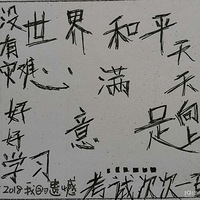 没有灾难
世界和平
心满意足
天天向上
好好学习
2018我的遗憾
考试次次一